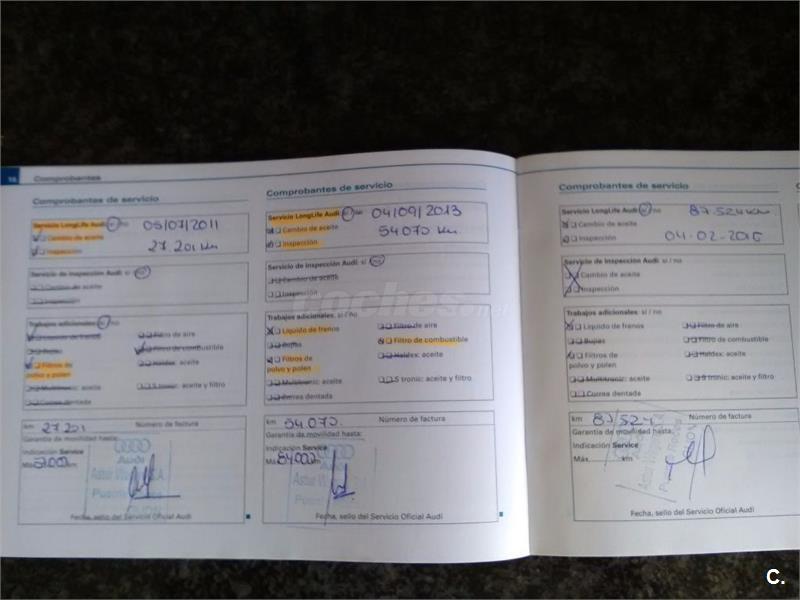 16 Comprobantes
Comprobantes de servicio
Servicio LongLife Audi: si / no 05/07/2011
Cambio de aceite
Inspección 27.201 km
Servicio de inspección Audi: si / no
Cambio de aceite
Inspección
Trabajos adicionales: si / no
Líquido de frenos Filtro de aire
Bujías Filtro de combustible
Filtros de polvo y polen Haldex: aceite
Multitronic: aceite S tronic: aceite y filtro
Correa dentada
km 27201 Número de factura
Garantía de movilidad hasta:
Indicación Service
Máx. km
Audi
Fecha, sello del Servicio Oficial Audi
Comprobantes de servicio
Servicio LongLife Audi: si / no 04/09/2013
Cambio de aceite 54070 km.
Inspección
Servicio de inspección Audi: si / no
Cambio de aceite
Inspección
Trabajos adicionales: si / no
Líquido de frenos Filtro de aire
Bujías Filtro de combustible
Filtros de Haldex: aceite
polvo y polen
Multitronic: aceite S tronic: aceite y filtro
Correa dentada
km 54.070. Número de factura
Garantía de movilidad hasta:
Indicación Service
Máx. 84000 km
Audi
Fecha, sello del Servicio Oficial Audi
Comprobantes de servicio
Servicio LongLife Audi: si / no 87.524 km
Cambio de aceite
Inspección 04-02-2016
Servicio de inspección Audi: si / no
Cambio de aceite
Inspección
Trabajos adicionales: si / no
Líquido de frenos Filtro de aire
Bujías Filtro de combustible
Filtros de Haldex: aceite
polvo y polen
Multitronic: aceite S tronic: aceite y filtro
Correa dentada
km 87524 Número de factura
Garantía de movilidad hasta:
Indicación Service
Máx. km
Fecha, sello del Servicio Oficial Audi
coches.net
C.